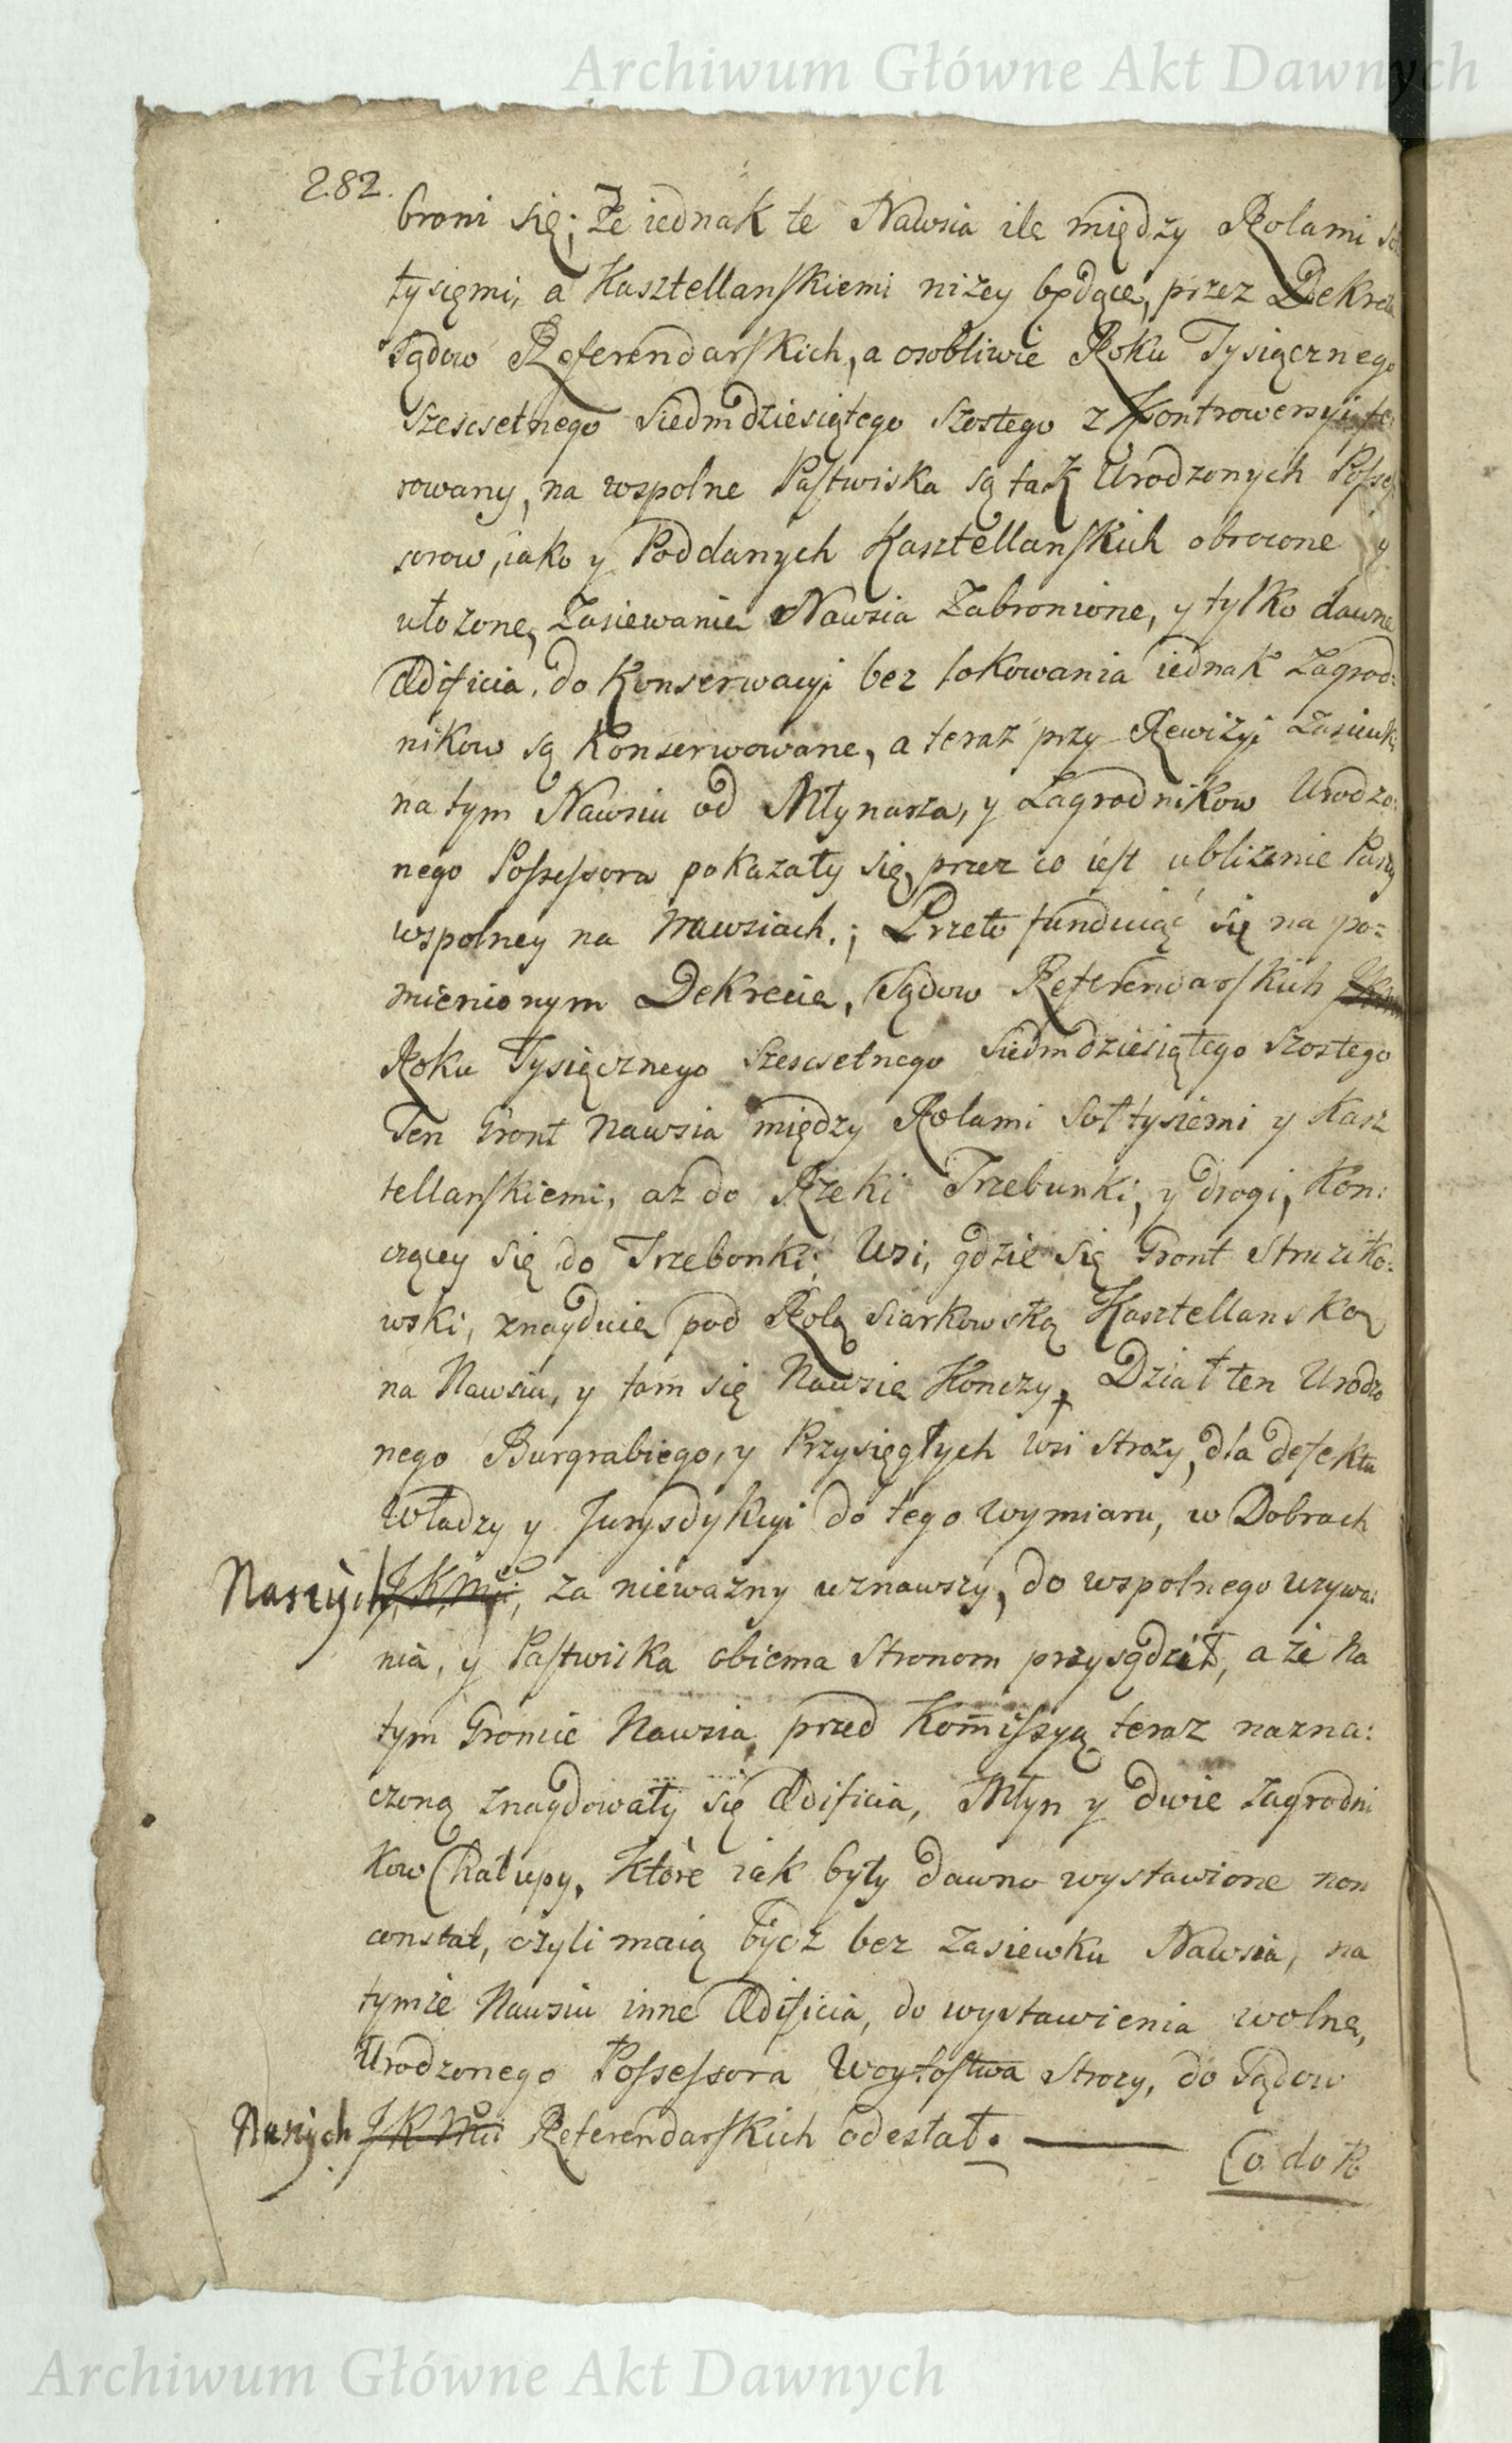 Archiwum Główne Akt Dawnych
282.
broni się; Że iednak te Nawsia ile między Rolami
tysięmi, a Kasztellanskiemi niżey będące, przez Dekreta
Sądow Referendarskich, a osobliwie Roku Tysiącznego
Szescsetnego Siedmdziesiątego Szostego z Kontrowersyi
rowany, na wspolne Pastwiska są tak Urodzonych Posses
sorow, iako y Poddanych Kasztellanskich obrocone y
ułożone, Zasiewanie Nawsia Zabronione, y tylko dawne
Ædificia, do Konserwacyi bez lokowania iednak Zagrod:
nikow są Konserwowane, a teraz przy Rewizyi Zasiewki
na tym Nawsiu od Młynarza, y Zagrodnikow Urodzo:
nego Possessora pokazały się, przez co iest ubliżenie Paszy
wspolney na Nawsiach.; Przeto funduiąc się na po=
mienionym Dekrecie, Sądow Referendarskich
Roku Tysięcznego Szescsetnego Siedmdziesiątego Szostego
Ten Gront Nawsia między Rolami Sołtysiemi y Kasz
tellanskiemi, aż do Rzeki Trzebunki, y drogi, Kon:
czącey się do Trzebonki; Wsi, gdzie się Gront Struziko:
wski, znayduie pod Rolą Siarkowską Kasztellanską
na Nawsiu, y tam się Nawsie Konczy, Dział ten Urodzo
nego Burgrabiego, y Przysięgłych wsi Strozy, dla defektu
Władzy y Jurysdykcyi do tego wymiaru, w Dobrach
Naszych J. K. Mci, za nieważny uznawszy, do wspolnego używa:
nia, y Pastwiska obiema Stronom przysądził, a że na
tym Groncie Nawsia, przed Kom̃issyą teraz nazna:
czoną znaydowały się Ædificia, Młyn y dwie Zagrodni
kow Chałupy, Które iak były dawno wystawione non
constat, czyli maią bydz bez Zasiewku Nawsia, na
tymże Nawsiu inne Ædificia, do wystawienia wolne,
Urodzonego Possessora Woytostwa Strozy, do Sądow
Naszych J K Mci Referendarskich odesłał.
Co do R
Archiwum Główne Akt Dawnych